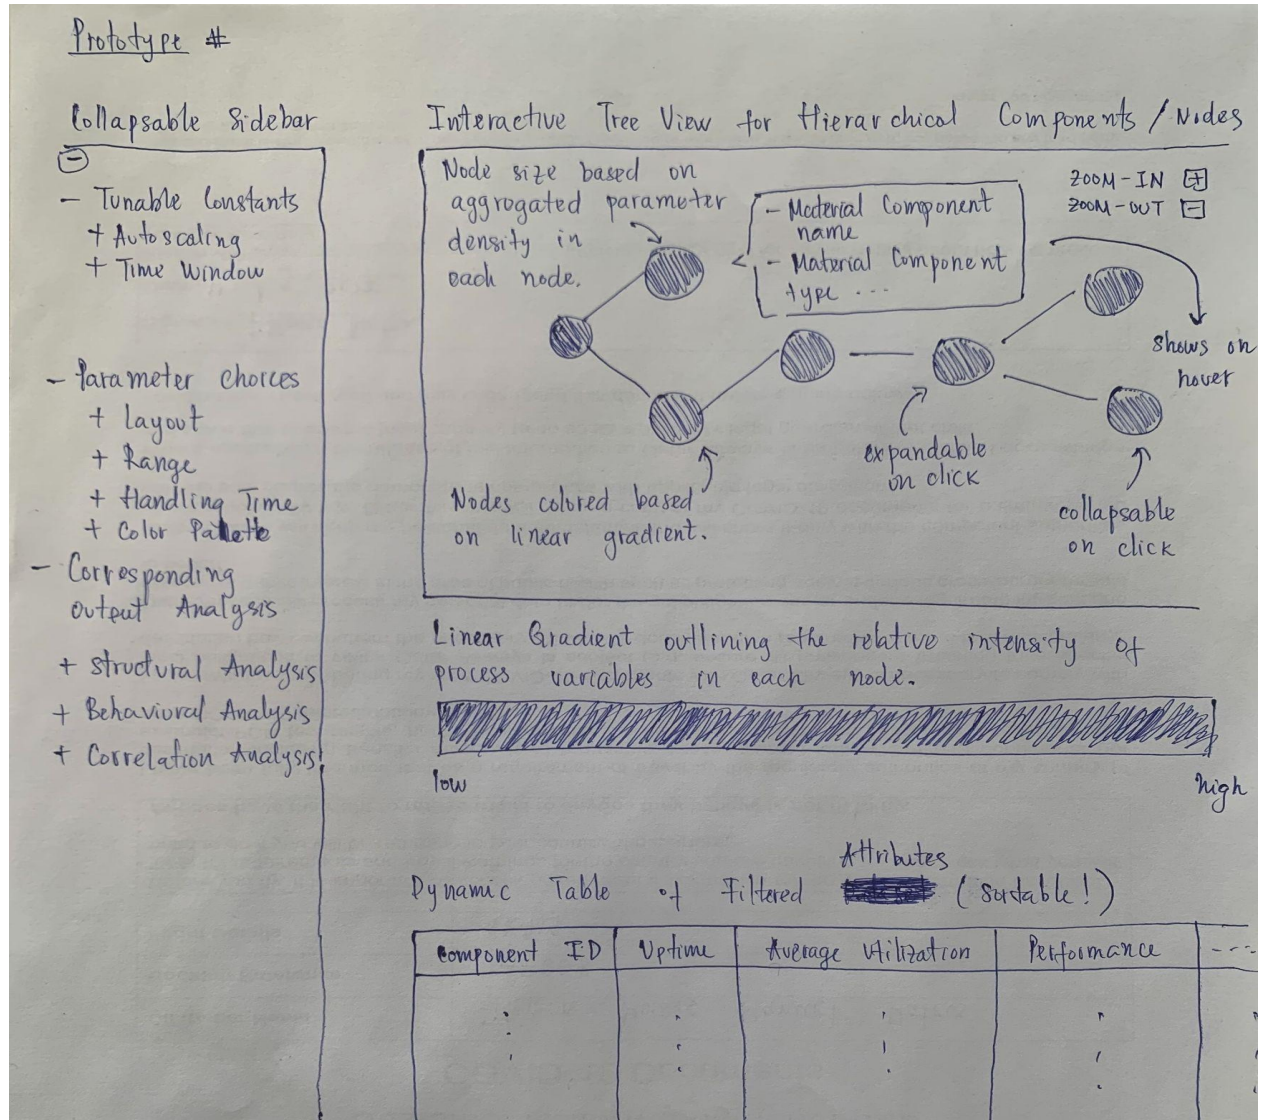 Prototype #
Collapsable Sidebar
- Tunable Constants
+ Autoscaling
+ Time Window
- Parameter Choices
+ Layout
+ Range
+ Handling Time
+ Color Palette
- Corresponding
Output Analysis
+ Structural Analysis
+ Behavioral Analysis
+ Correlation Analysis
Interactive Tree View for Hierarchical Components / Nodes
Node size based on
aggrogated parameter
density in
each node.
- Material Component
name
- Material Component
type ...
ZOOM-IN +
ZOOM-OUT -
shows on
hover
expandable
on click
collapsable
on click
Nodes colored based
on linear gradient.
Linear Gradient outlining the relative intensity of
process variables in each node.
low
high
Attributes
Dynamic Table of Filtered (Sortable!)
Component ID Uptime Average Utilization Performance ---